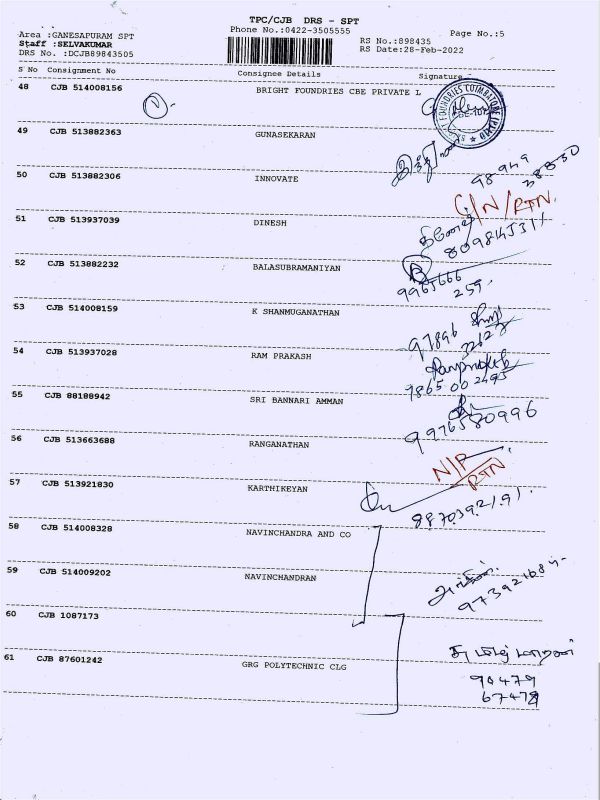 TPC/CJB DRS - SPT
Area :GANESAPURAM SPT
Phone No.:0422-3505555
Page No.:5
Staff :SELVAKUMAR
RS No.:898435
DRS No. :DCJB89843505
RS Date:28-Feb-2022
S No Consignment No Consignee Details Signature
48 CJB 514008156 BRIGHT FOUNDRIES CBE PRIVATE L
49 CJB 513882363 GUNASEKARAN
50 CJB 513882306 INNOVATE
C/N/RTN.
51 CJB 513937039 DINESH
தினேஷ்
52 CJB 513882232 BALASUBRAMANIYAN
9965666
259
53 CJB 514008159 K SHANMUGANATHAN
97896
54 CJB 513937028 RAM PRAKASH
Ramprakash
9865002493
55 CJB 88188942 SRI BANNARI AMMAN
9976580996
56 CJB 513663688 RANGANATHAN
N/P
RTN
57 CJB 513921830 KARTHIKEYAN
58 CJB 514008328 NAVINCHANDRA AND CO
59 CJB 514009202 NAVINCHANDRAN
60 CJB 1087173
61 CJB 87601242 GRG POLYTECHNIC CLG
90479
67478